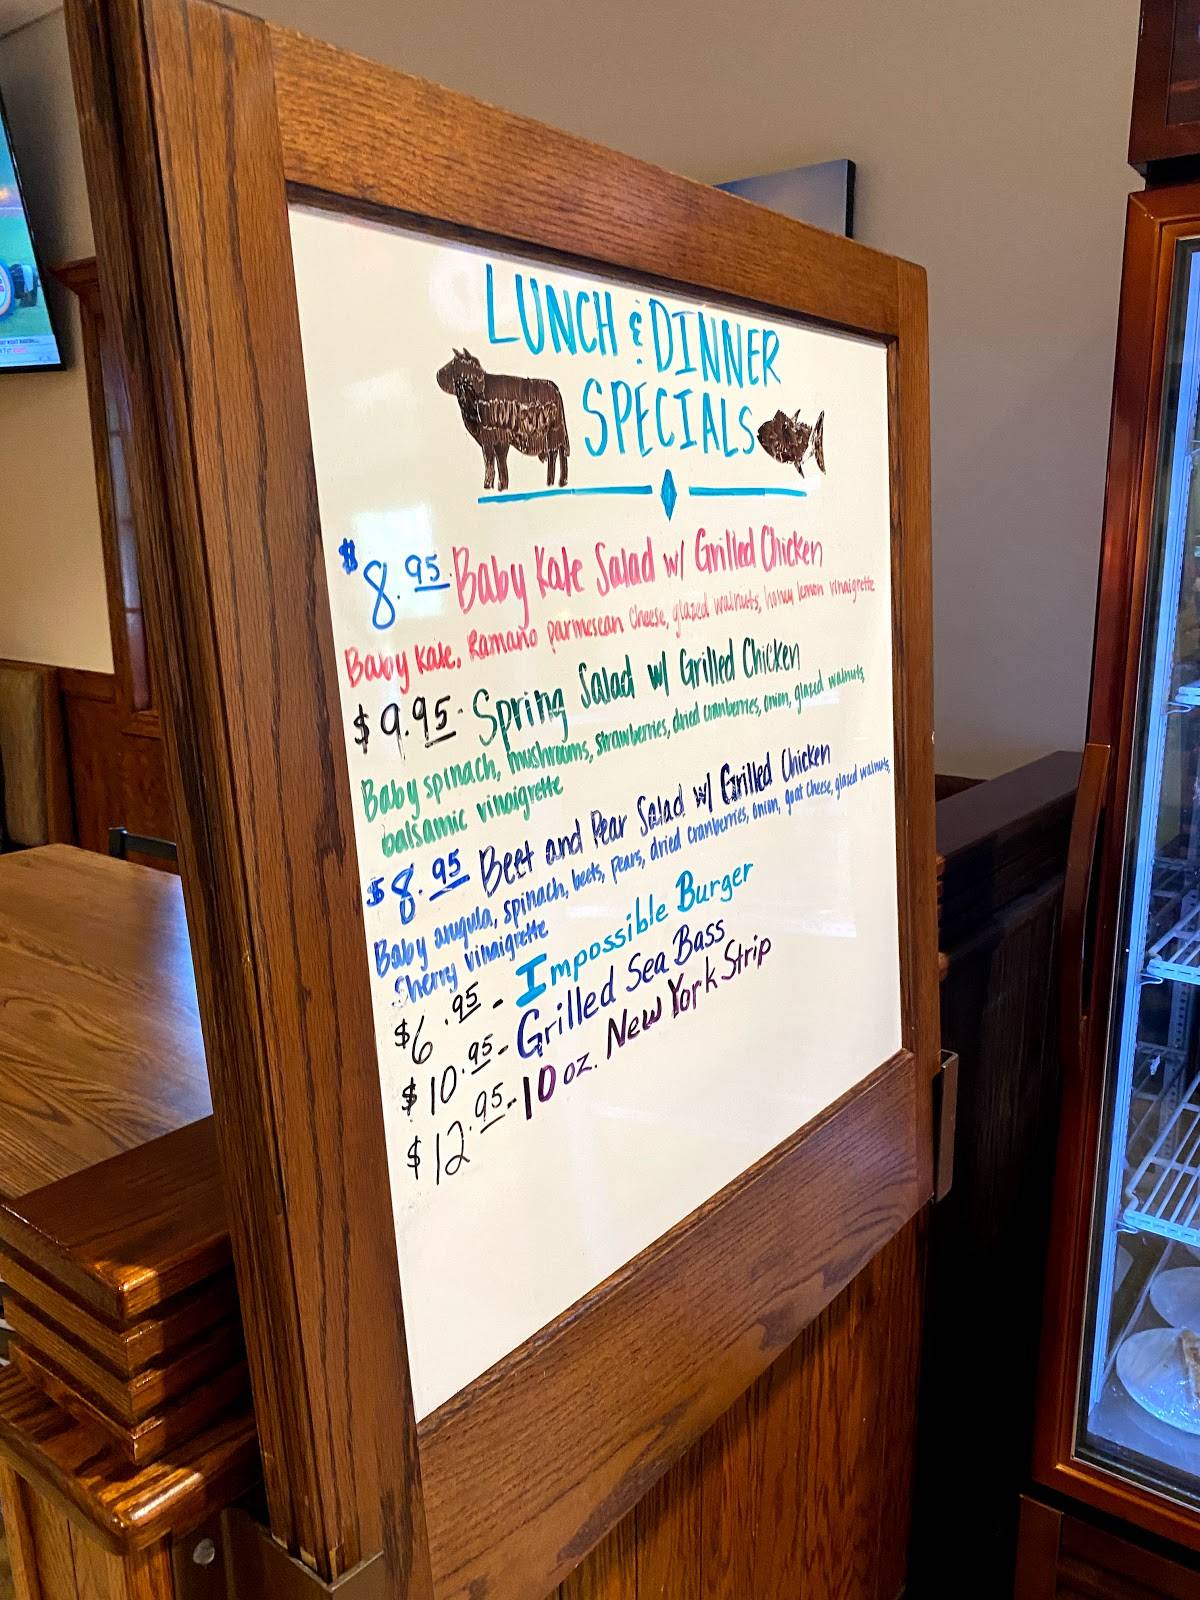 LUNCH & DINNER
SPECIALS
$8.95. Baby Kale Salad w/ Grilled Chicken
Baby Kale, Ramano parmesean Cheese, glazed walnuts, honey lemon vinaigrette
$9.95. Spring Salad w/ Grilled Chicken
Baby spinach, mushrooms, strawberries, dried cranberries, onion, glazed walnuts,
balsamic vinaigrette
$8.95 Beet and Pear Salad w/ Grilled Chicken
Baby arugula, spinach, beets, pears, dried cranberries, onion, goat cheese, glazed walnuts,
Sherry vinaigrette
$6.95 - Impossible Burger
$10.95 - Grilled Sea Bass
$12.95 - 10 oz. New York Strip